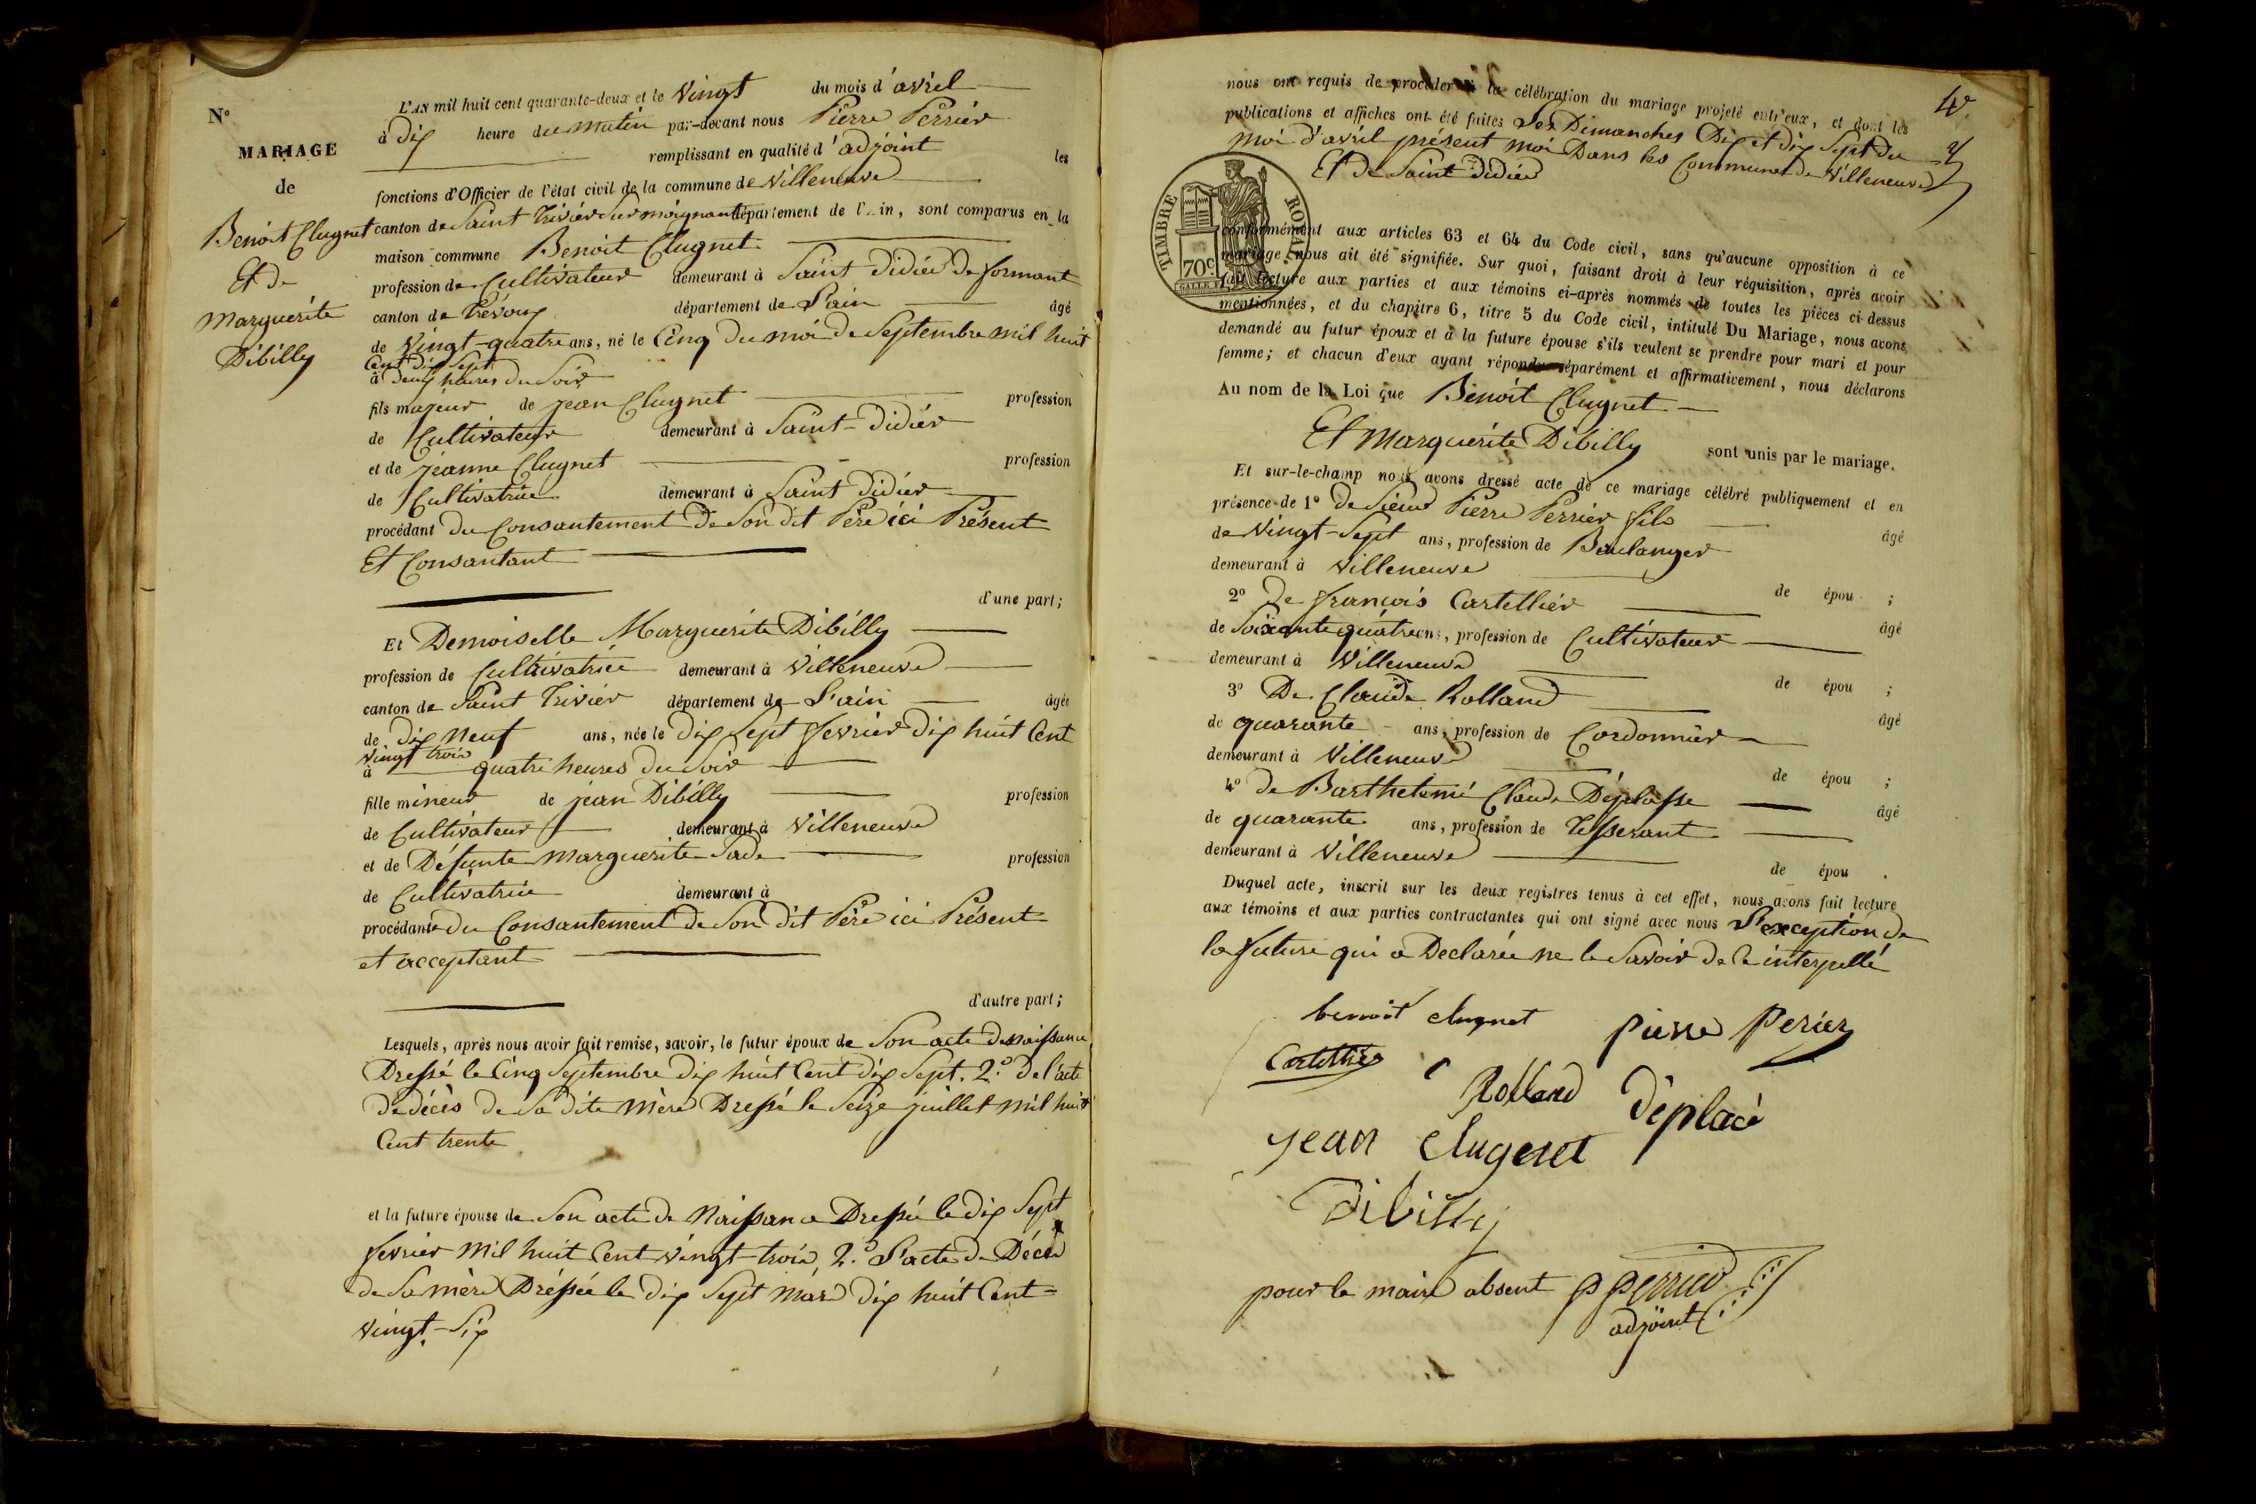 N°
MARIAGE
de
Benoit Clugnet
Et de
Marguerite
Dibilly
L'AN mil huit cent quarante-deux et le Vingt du mois d'avril
à dix heure du matin par-devant nous Pierre Perrier
remplissant en qualité d'adjoint les
fonctions d'Officier de l'état civil de la commune de Villeneuve
canton de Saint Trivier Sur moignant département de l'Ain, sont comparus en la
maison commune Benoit Clugnet
profession de Cultivateur demeurant à Saint Didier De formant
canton de Trévoux département de L'ain âgé
de Vingt-quatre ans, né le Cinq du moi de Septembre mil huit
Cent dix Sept
à deux heures du Soir
fils majeur de jean Clugnet profession
de Cultivateur demeurant à Saint-Didier
et de jeanne Clugnet profession
de Cultivatrice demeurant à Saint Didier
procédant du Consantement de Son dit Père ici Présent
Et Consantant
d'une part;
Et Demoiselle Marguerite Dibilly
profession de Cultivatrice demeurant à Villeneuve
canton de Saint Trivier département de L'ain âgée
de dix Neuf ans, née le dix Sept fevrier dix huit Cent
Vingt trois
à quatre heures du Soir
fille mineur de jean Dibilly profession
de Cultivateur demeurant à Villeneuve
et de Défunte Marguerite Sade profession
de Cultivatrice demeurant à
procédante du Consantement de Son dit Père ici Présent
et acceptant
d'autre part;
Lesquels, après nous avoir fait remise, savoir, le futur époux de Son acte de naissance
Dressé le Cinq Septembre dix huit Cent dix Sept. 2° de l'acte
de décès de Sa dite Mère Dressé le Seize juillet mil huit
Cent trente
et la future épouse de Son acte de Naissance Dressée le dix Sept
fevrier mil huit Cent vingt-trois, 2° L'acte de Décès
de Sa mère Dréssée le dix Sept Mars dix huit Cent
vingt-Six
4e
nous ont requis de procéder à la célébration du mariage projeté entr'eux, et dont les
publications et affiches ont été faites Les Dimanches Dix et dix Sept du
moi d'avril présent moi Dans les Communes de Villeneuve
Et de Saint Didier
TIMBRE ROYAL
70c
conformément aux articles 63 et 64 du Code civil, sans qu'aucune opposition à ce
mariage nous ait été signifiée. Sur quoi, faisant droit à leur réquisition, après avoir
fait lecture aux parties et aux témoins ci-après nommés de toutes les pièces ci-dessus
mentionnées, et du chapitre 6, titre 5 du Code civil, intitulé Du Mariage, nous avons
demandé au futur époux et à la future épouse s'ils veulent se prendre pour mari et pour
femme; et chacun d'eux ayant répondu séparément et affirmativement, nous déclarons
Au nom de la Loi que Benoit Clugnet
Et Marguerite Dibilly sont unis par le mariage.
Et sur-le-champ nous avons dressé acte de ce mariage célébré publiquement et en
présence de 1° De Sieur Pierre Perrier fils
de Vingt-Sept ans, profession de Boulanger âgé
demeurant à Villeneuve
de épou ;
2° De françois Cartellier
de Soixante quatre ans, profession de Cultivateur âgé
demeurant à Villeneuve
de épou ;
3° De Claude Rolland
de quarante ans, profession de Cordonnier âgé
demeurant à Villeneuve
de épou ;
4° de Barthelemi Claude Déplasse
de quarante ans, profession de Tisserant âgé
demeurant à Villeneuve
de épou .
Duquel acte, inscrit sur les deux registres tenus à cet effet, nous avons fait lecture
aux témoins et aux parties contractantes qui ont signé avec nous L'exception de
la future qui a Declarée ne le Savoir de ce interpellé
benoit clugnet pierre Perier
Cartellier
Rolland Déplacé
jean Clugenet
Dibilly
pour le maire absent P Perrier
adjoint